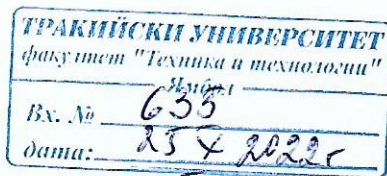 ТРАКИЙСКИ УНИВЕРСИТЕТ
факултет "Техника и технологии"
Ямбол
Вх. № 635
дата: 25 X 2022г